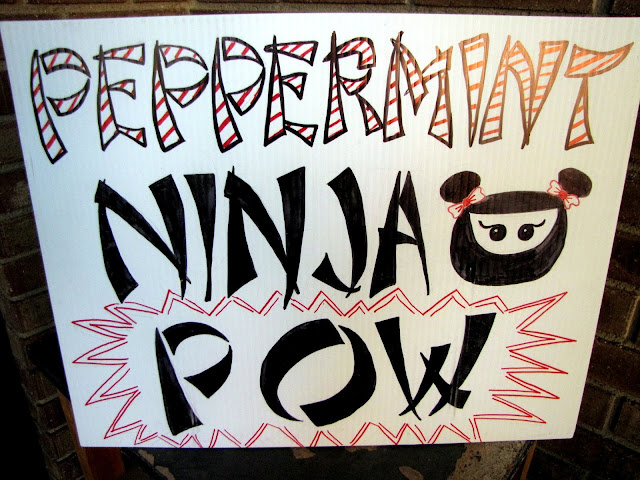 PEPPERMINT
NINJA
POW